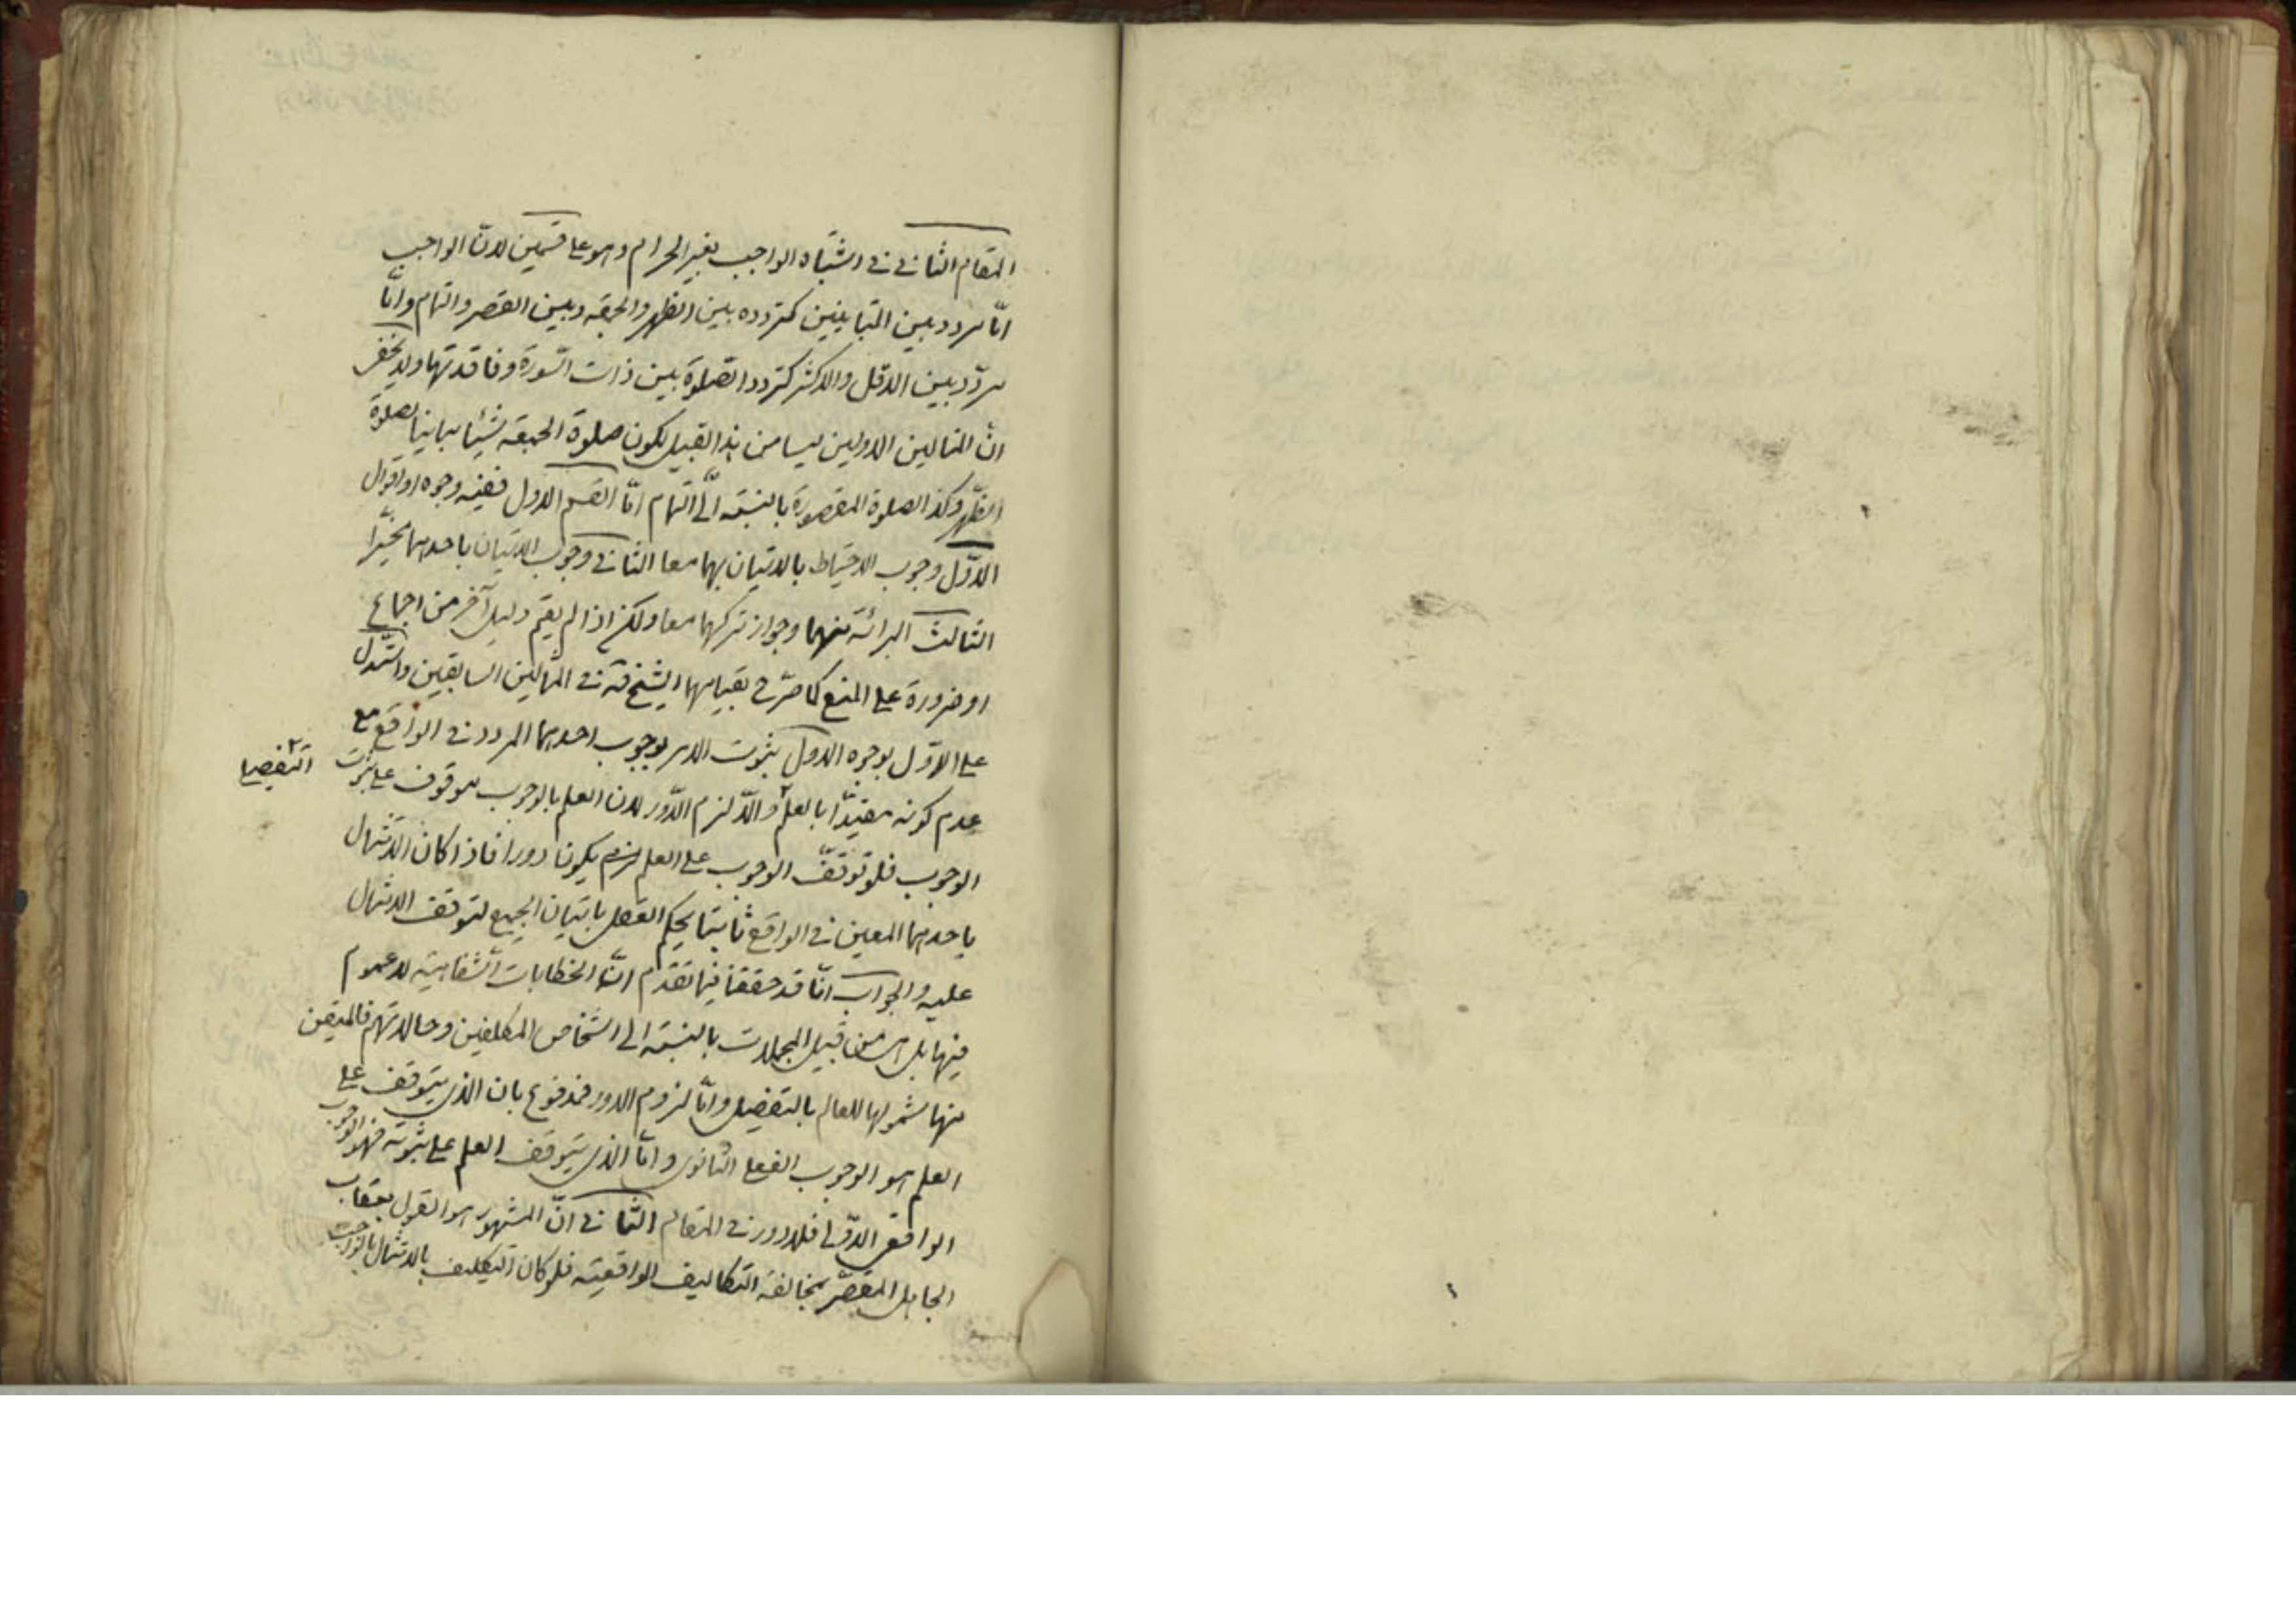 المقام الثانى فى اشتباه الواجب بغير الحرام وهو على قسمين لانّ الواجب
امّا مردد بين المتباينين كتردده بين الظهر والجمعة وبين القصر والتمام وامّا
مردّد بين الاقل والاكثر كتردد الصلوة بين ذات السّورة وفاقدتها ولا يخفى
انّ المثالين الاولين ليسا من هذا القبيل لكون صلوة الجمعة شيئا مباينا لصلوة
الظّهر وكذا الصلوة المقصورة بالنسبة الى التمام امّا القسم الاول ففيه وجوه او اقوال
الاوّل وجوب الاحتياط بالاتيان بهما معا الثانى وجوب الاتيان باحدهما مخيّرا
الثالث البرائة منهما وجواز تركهما معا ولكن اذا لم يقم دليل آخر من اجماع
او ضرورة على المنع كما صرّح بقيامهما الشيخ قده فى المثالين السابقين واستدل
على الاوّل بوجوه الاول بثبوت الامر بوجوب احدهما المردد فى الواقع مع
عدم كونه مقيدّا بالعلم والّا لزم الدّور لان العلم بالوجوب موقوف على ثبوت
التفصيلى
الوجوب فلو توقّف الوجوب على العلم لزم يكونا دورا فاذا كان الامتثال
باحدهما المعين فى الواقع ثابتا يحكم العقل باتيان الجميع لتوقف الامتثال
عليه والجواب انّا قد حققنا فيما تقدم انّ الخطابات الشفاهية لا عموم
فيها بل هى من قبيل المجملات بالنسبة الى اشخاص المكلفين وحالاتهم فالمتيقن
منها شمولها للعالم بالتفصيل وامّا لزوم الدور فمدفوع بان الذى يتوقف على
العلم هو الوجوب الفعلى الثانوى وامّا الذى يتوقف العلم على ثبوته فهو الوجوب
الواقعى الاوّلى فلا دور فى المقام الثانى انّ المشهور هو القول بعقاب
الجاهل المقصّر بمخالفة التكاليف الواقعية فلو كان التكليف بالامتثال بالواجب